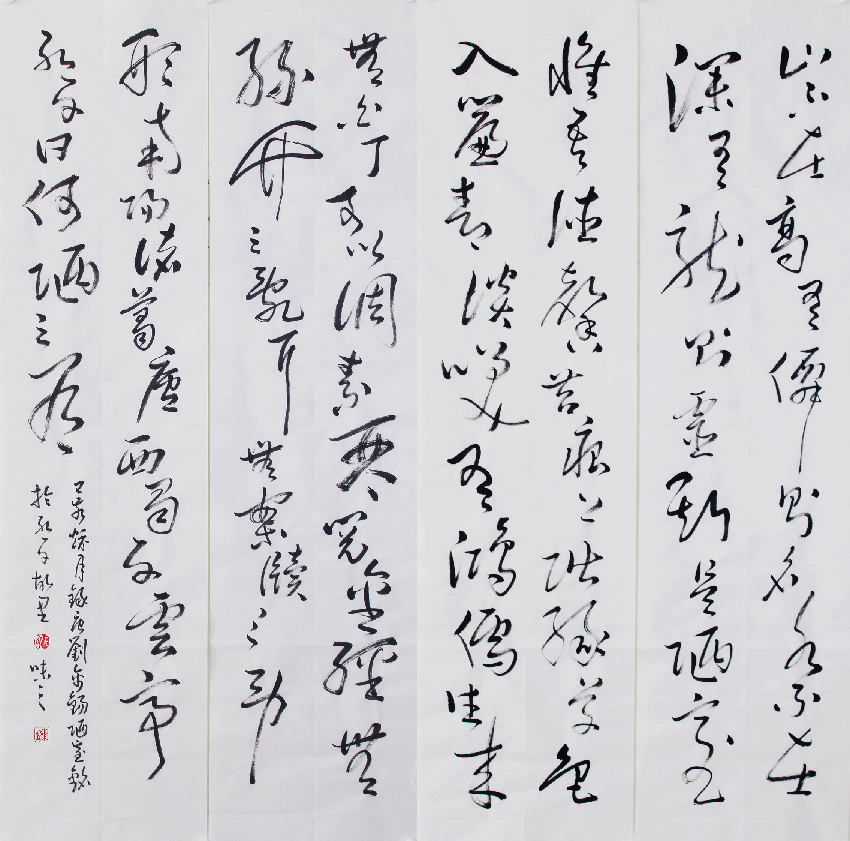 山不在高有僊則名水不在
深有龍則靈斯是陋室
惟吾德馨苔痕上階綠草色
入簾青談笑有鴻儒往來
無白丁可以調素琴閱金經無
絲竹之亂耳無案牘之勞
形南陽諸葛廬西蜀子雲亭
孔子曰何陋之有
月錄唐劉禹錫陋室銘
於孔子故里 味之